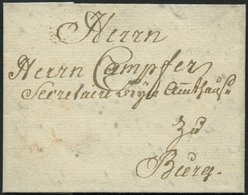 Herrn
Herrn Campfer
Secretaire beym Amthause
zu
Burg.